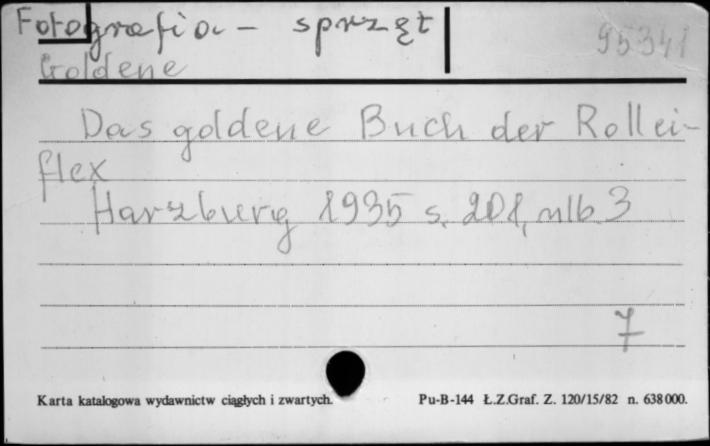 Fotografia - sprzęt
95341
Goldene
Das goldene Buch der Rollei-
flex
Harzburg 1935 s. 201, nlb. 3
7
Karta katalogowa wydawnictw ciągłych i zwartych.
Pu-B-144 Ł.Z.Graf. Z. 120/15/82 n. 638000.